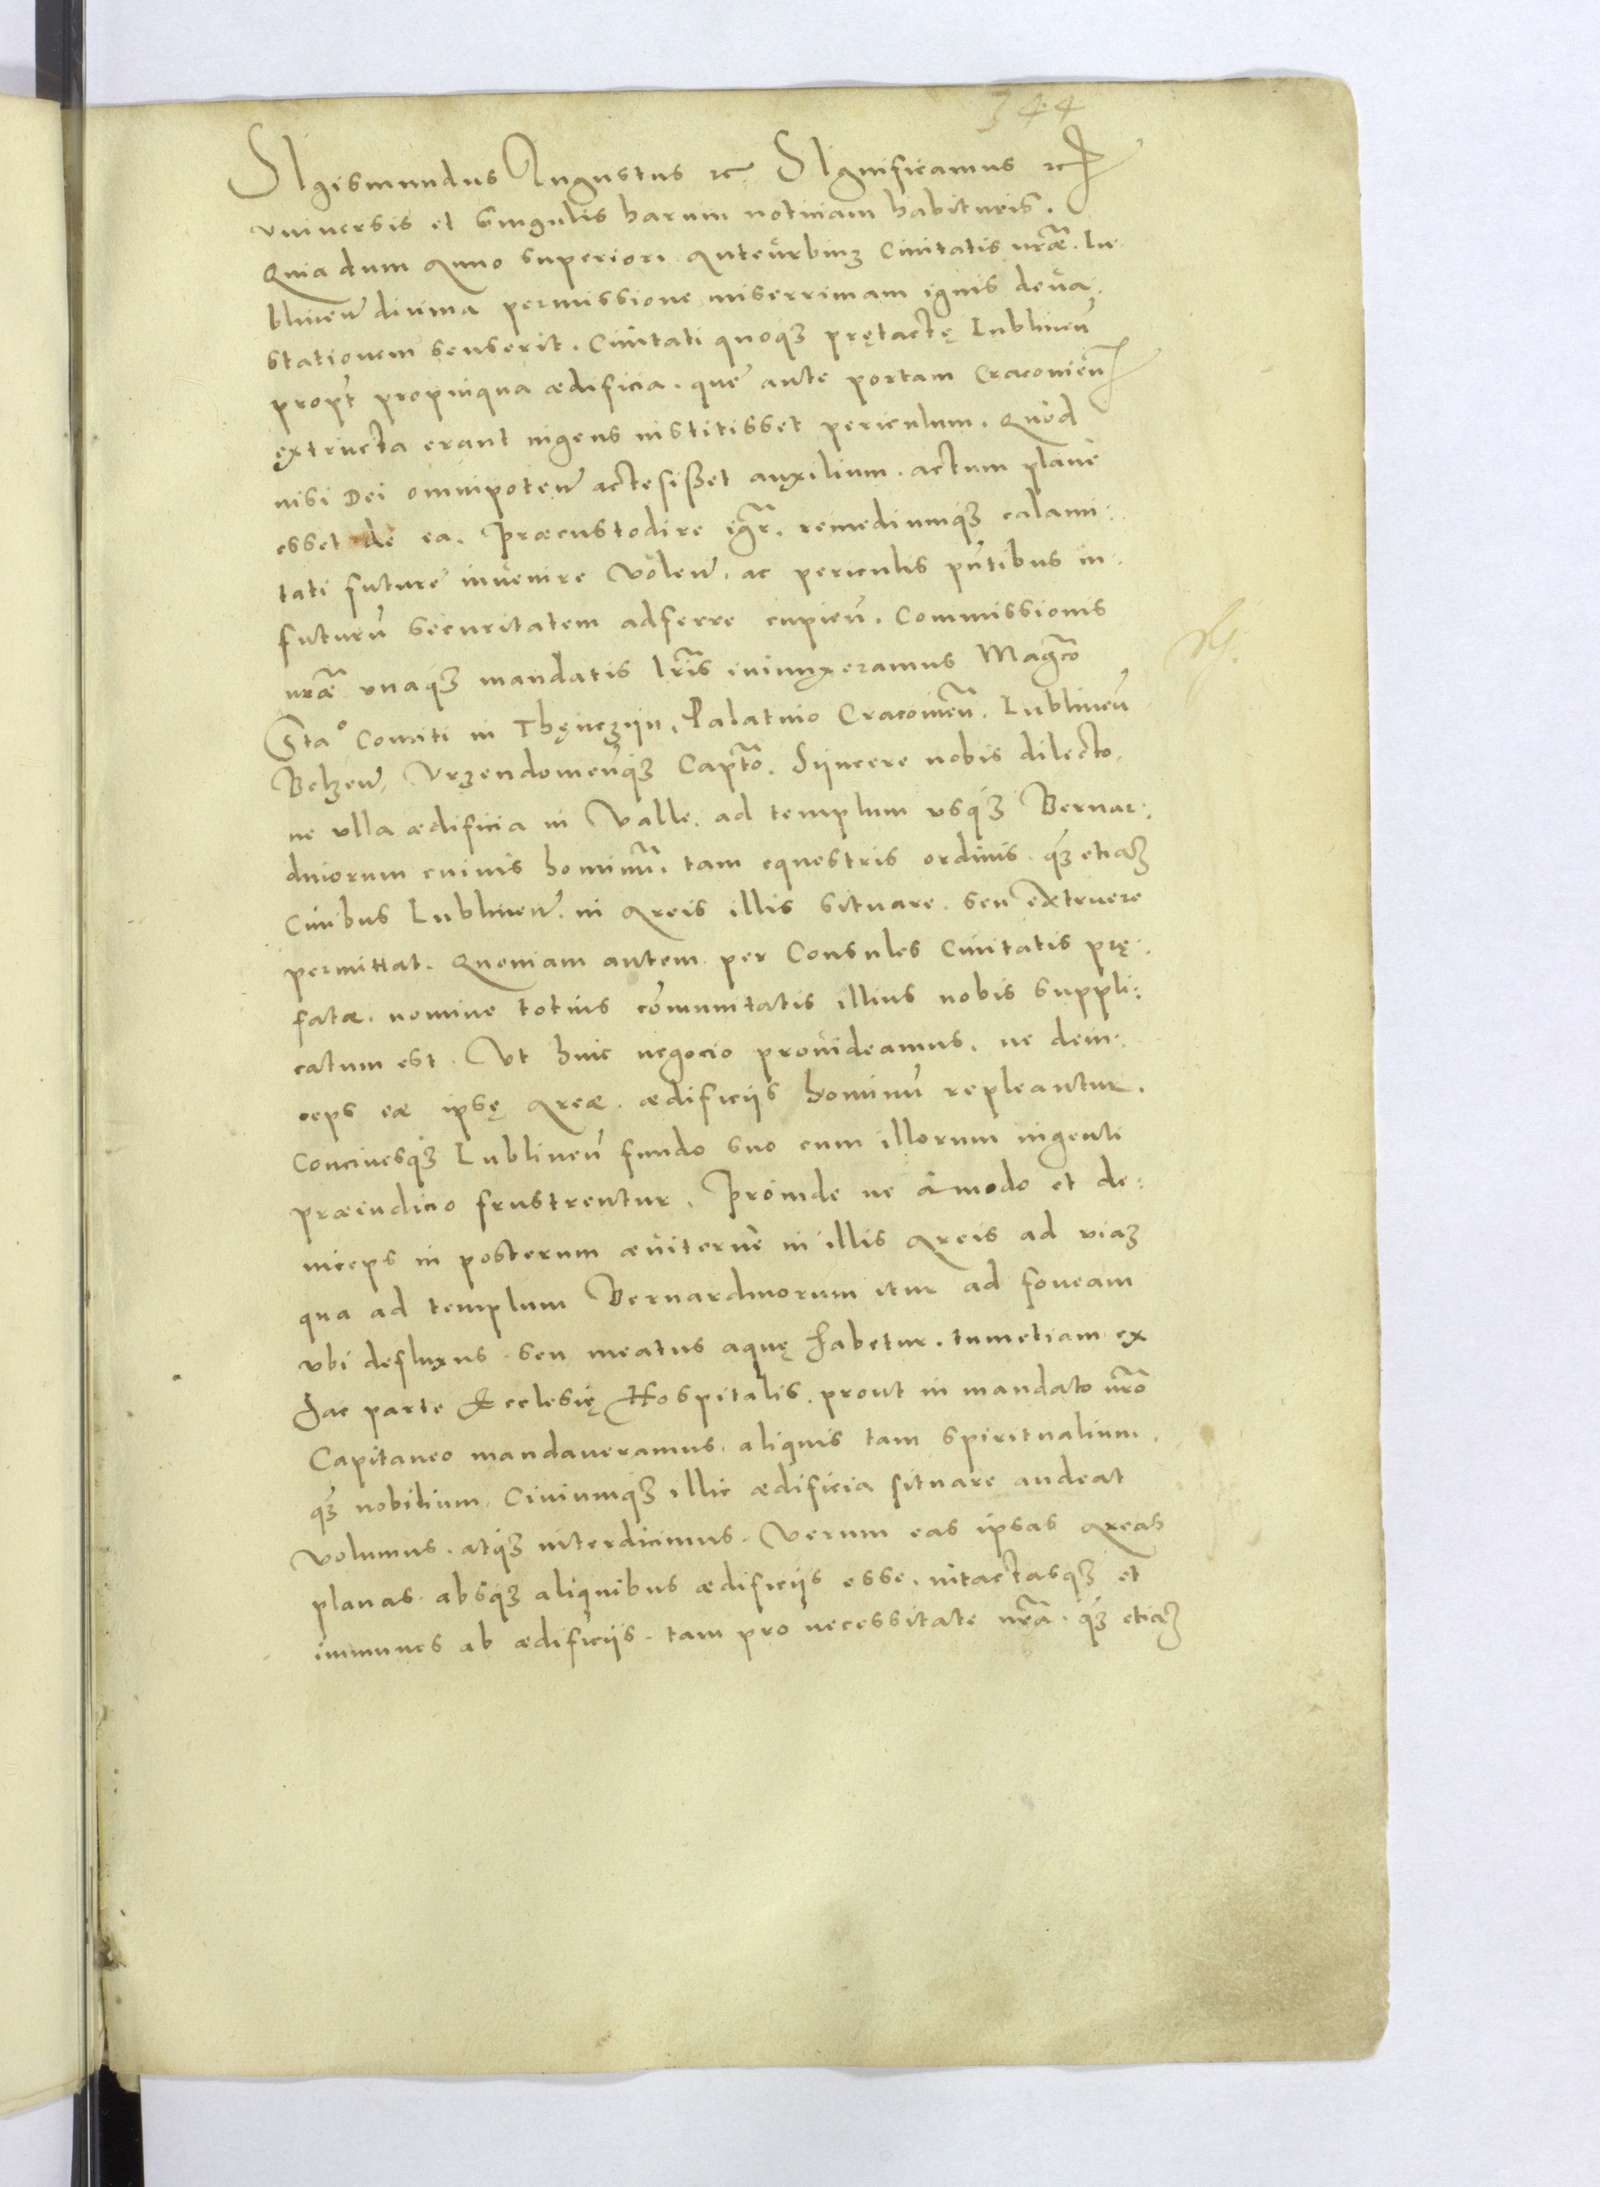 344
SIgismundus Augustus etc SIgnificamus etc
vniuersis et singulis harum notitiam habituris.
Quia dum Anno superiori Anteurbiuʒ Ciuitatis nr̃æ. Lu-
blineñ diuina permissione miserrimam ignis deua-
stationem senserit. Ciuitati quoqʒ prętactę Lublineñ
propt̃ propinqua ædificia. que ante portam Cracouieñ
extructa erant ingens institisset periculum. Quod
nisi Dei omnipoteñ actesisset auxilium. actum plane
esset de ea. Præcustodire igr̃. remediumqʒ calami-
tati future inuenire voleñ. ac periculis pñtibus in
futurũ securitatem adferre cupieñ. Commissionis
nr̃æ vnaqʒ mandatis lr̃is iniunxeramus Magco
Sta° Comiti in Thęnczijn, Palatino Cracouieñ. Lublineñ
Belzeñ, Vrzendouieñqʒ Captõ. Sijncere nobis dilecto
ne vlla ædificia in Valle. ad templum vsqʒ Bernar-
dinorum cuiuis hominũ. tam equestris ordinis. qʒ etiaʒ
Ciuibus Lublineñ. in Areis illis situare. seu extruere
permittat. Quoniam autem per Consules Ciuitatis prę-
fatæ. nomine totius com̃unitatis illius nobis suppli-
catum est. Vt huic negocio prouideamus. ne dein-
ceps eæ ipsę Areæ. ædificijs hominũ repleantur.
Conciuesqʒ Lublineñ fundo suo cum illorum ingenti
præiudicio frustrentur. Proinde ne àmodo et de-
inceps in posterum æuiterne in illis Areis ad viaʒ
qua ad templum Bernardinorum itur ad foueam
vbi defluxus. seu meatus aquę habetur. tumetiam ex
hac parte Ecclesię Hospitalis. prout in mandato nrõ
Capitaneo mandaueramus. aliquis tam spiritualium.
qʒ nobilium. Ciuiumqʒ illic ædificia situare audeat
volumus. atqʒ interdicimus. Verum eas ipsas Areas
planas. absqʒ aliquibus ædificijs esse. intactasqʒ et
immunes ab ædificijs. tam pro necessitate nr̃a. qʒ etiaʒ